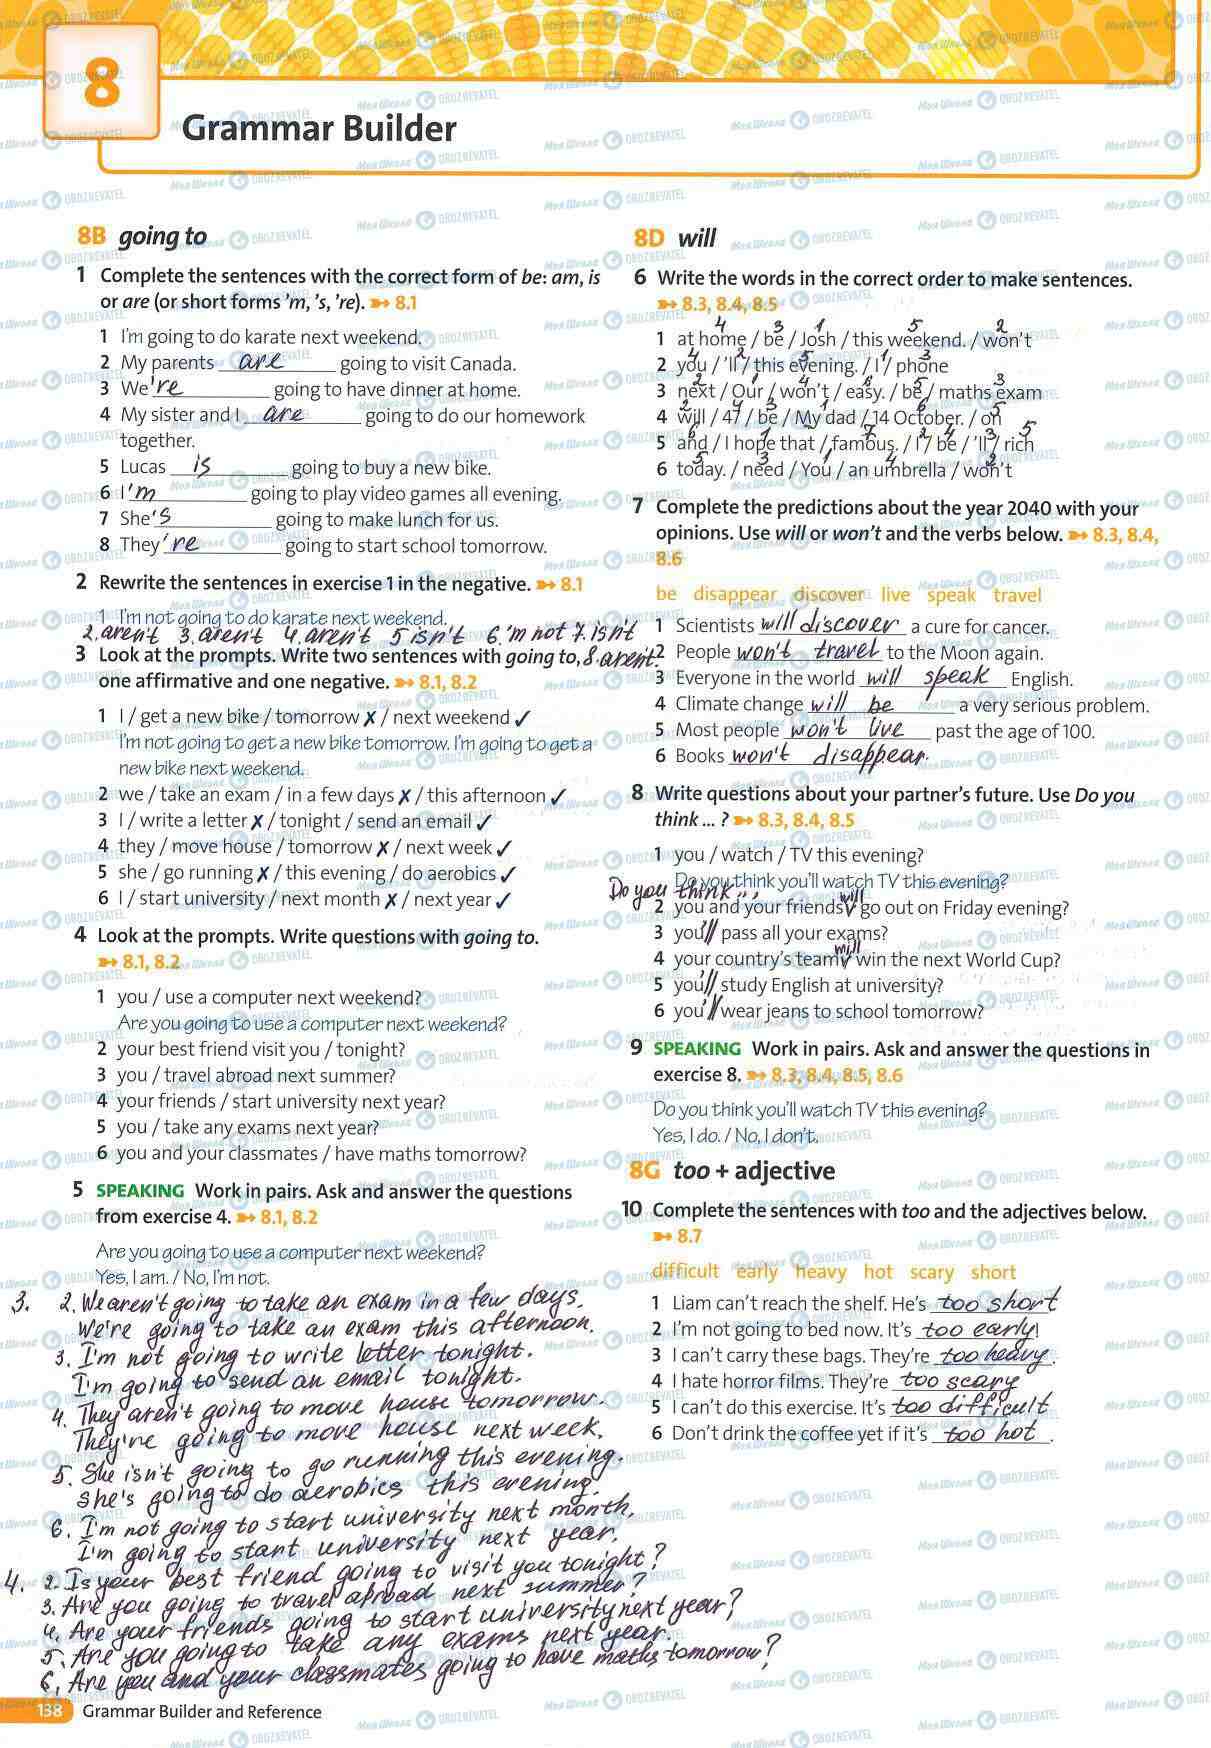 8
Grammar Builder
8B going to
1 Complete the sentences with the correct form of be: am, is
or are (or short forms 'm, 's, 're). ➻ 8.1
1 I'm going to do karate next weekend.
2 My parents are going to visit Canada.
3 We're going to have dinner at home.
4 My sister and I are going to do our homework
together.
5 Lucas is going to buy a new bike.
6 I'm going to play video games all evening.
7 She's going to make lunch for us.
8 They're going to start school tomorrow.
2 Rewrite the sentences in exercise 1 in the negative. ➻ 8.1
1 I'm not going to do karate next weekend.
2. aren't 3. aren't 4. aren't 5 isn't 6. 'm not 7. isn't
8. aren't.
3 Look at the prompts. Write two sentences with going to,
one affirmative and one negative. ➻ 8.1, 8.2
1 I / get a new bike / tomorrow ✗ / next weekend ✓
I'm not going to get a new bike tomorrow. I'm going to get a
new bike next weekend.
2 we / take an exam / in a few days ✗ / this afternoon ✓
3 I / write a letter ✗ / tonight / send an email ✓
4 they / move house / tomorrow ✗ / next week ✓
5 she / go running ✗ / this evening / do aerobics ✓
6 I / start university / next month ✗ / next year ✓
4 Look at the prompts. Write questions with going to.
➻ 8.1, 8.2
1 you / use a computer next weekend?
Are you going to use a computer next weekend?
2 your best friend visit you / tonight?
3 you / travel abroad next summer?
4 your friends / start university next year?
5 you / take any exams next year?
6 you and your classmates / have maths tomorrow?
5 SPEAKING Work in pairs. Ask and answer the questions
from exercise 4. ➻ 8.1, 8.2
Are you going to use a computer next weekend?
Yes, I am. / No, I'm not.
3. 2. We aren't going to take an exam in a few days.
We're going to take an exam this afternoon.
3. I'm not going to write letter tonight.
I'm going to send an email tonight.
4. They aren't going to move house tomorrow.
They're going to move house next week.
5. She isn't going to go running this evening.
She's going to do aerobics this evening.
6. I'm not going to start university next month.
I'm going to start university next year.
4. 2. Is your best friend going to visit you tonight?
3. Are you going to travel abroad next summer?
4. Are your friends going to start university next year?
5. Are you going to take any exams next year.
6. Are you and your classmates going to have maths tomorrow?
138 Grammar Builder and Reference
8D will
6 Write the words in the correct order to make sentences.
➻ 8.3, 8.4, 8.5
4 3 1 5 2
1 at home / be / Josh / this weekend. / won't
4 2 5 1 3
2 you / 'll / this evening. / I / phone
2 1 4 6 5 3
3 next / Our / won't / easy. / be / maths exam
2 4 3 1 6 5
4 will / 47 / be / My dad / 14 October. / on
6 1 7 2 4 3 5
5 and / I hope that / famous. / I / be / 'll / rich
5 3 1 4 2
6 today. / need / You / an umbrella / won't
7 Complete the predictions about the year 2040 with your
opinions. Use will or won't and the verbs below. ➻ 8.3, 8.4,
8.6
be disappear discover live speak travel
1 Scientists will discover a cure for cancer.
2 People won't travel to the Moon again.
3 Everyone in the world will speak English.
4 Climate change will be a very serious problem.
5 Most people won't live past the age of 100.
6 Books won't disappear.
8 Write questions about your partner's future. Use Do you
think ... ? ➻ 8.3, 8.4, 8.5
1 you / watch / TV this evening?
Do you think you'll watch TV this evening?
Do you think ...
will
2 you and your friends / go out on Friday evening?
3 you'll / pass all your exams?
will
4 your country's team / win the next World Cup?
5 you'll / study English at university?
6 you'll / wear jeans to school tomorrow?
9 SPEAKING Work in pairs. Ask and answer the questions in
exercise 8. ➻ 8.3, 8.4, 8.5, 8.6
Do you think you'll watch TV this evening?
Yes, I do. / No, I don't.
8G too + adjective
10 Complete the sentences with too and the adjectives below.
➻ 8.7
difficult early heavy hot scary short
1 Liam can't reach the shelf. He's too short
2 I'm not going to bed now. It's too early!
3 I can't carry these bags. They're too heavy.
4 I hate horror films. They're too scary
5 I can't do this exercise. It's too difficult
6 Don't drink the coffee yet if it's too hot.